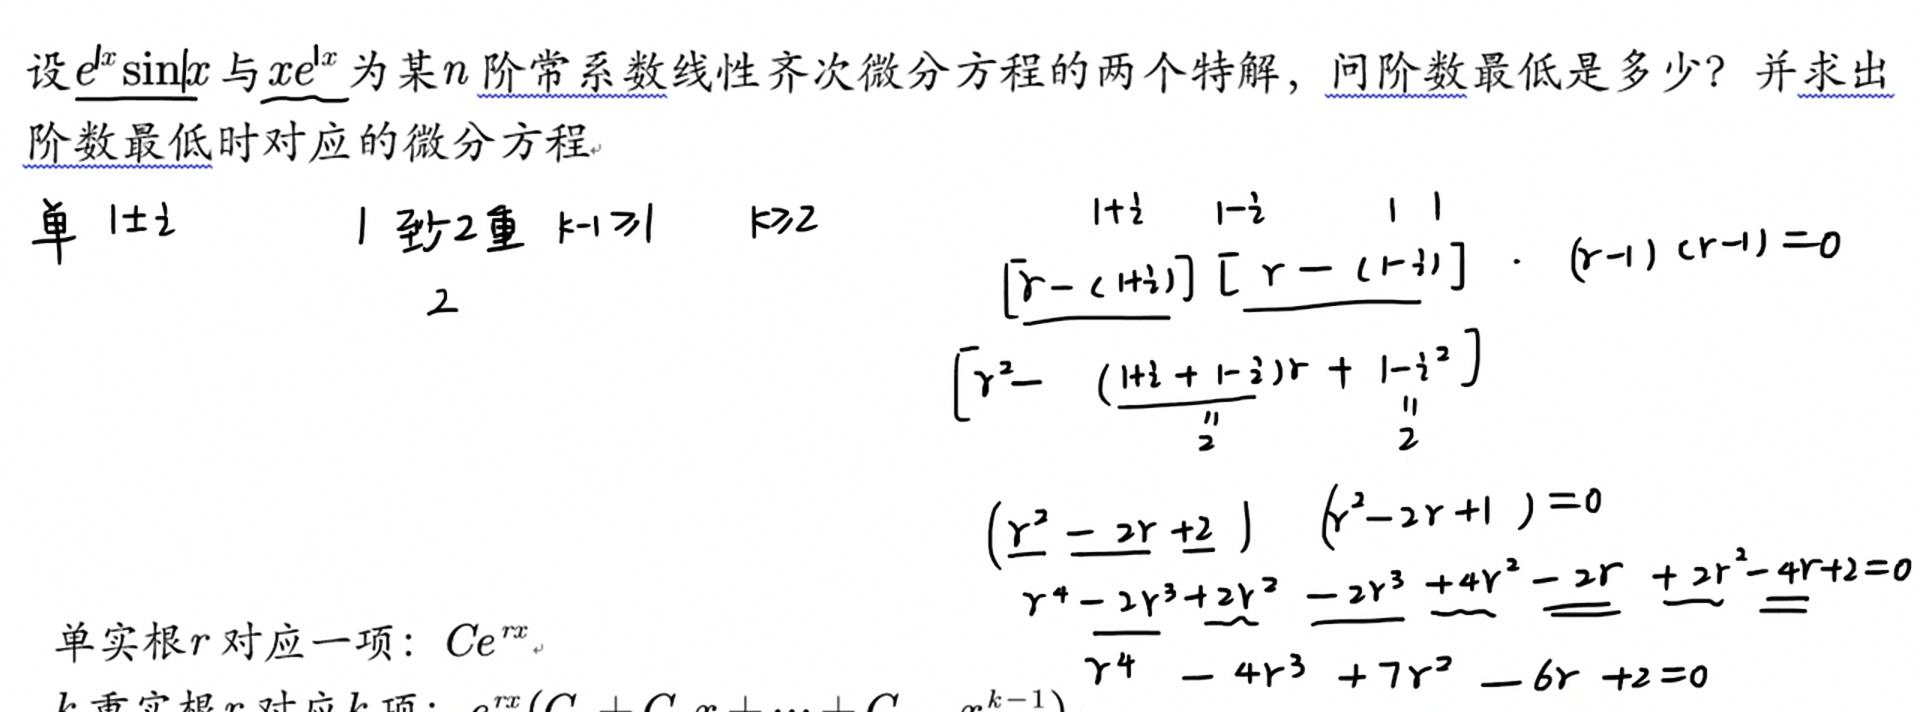 设e^{1x} sin|x 与 xe^{1x} 为某n 阶常系数线性齐次微分方程的两个特解，问阶数最低是多少？并求出
阶数最低时对应的微分方程
单 1±i 1 至少2重 k-1≥1 k≥2
2
1+i 1-i 1 1
[r-(1+i)] [r-(1-i)] · (r-1) (r-1)=0
[r²- (1+i+1-i)r + 1-i²]
" "
2 2
(r² - 2r +2) (r²-2r+1)=0
r⁴ -2r³+2r² -2r³ +4r² -2r +2r²-4r+2=0
r⁴ -4r³ +7r² -6r +2=0
单实根r 对应一项：Ce^{rx}
k 重实根r 对应k 项：e^{rx}(C + C x + ⋯ + C x^{k-1})